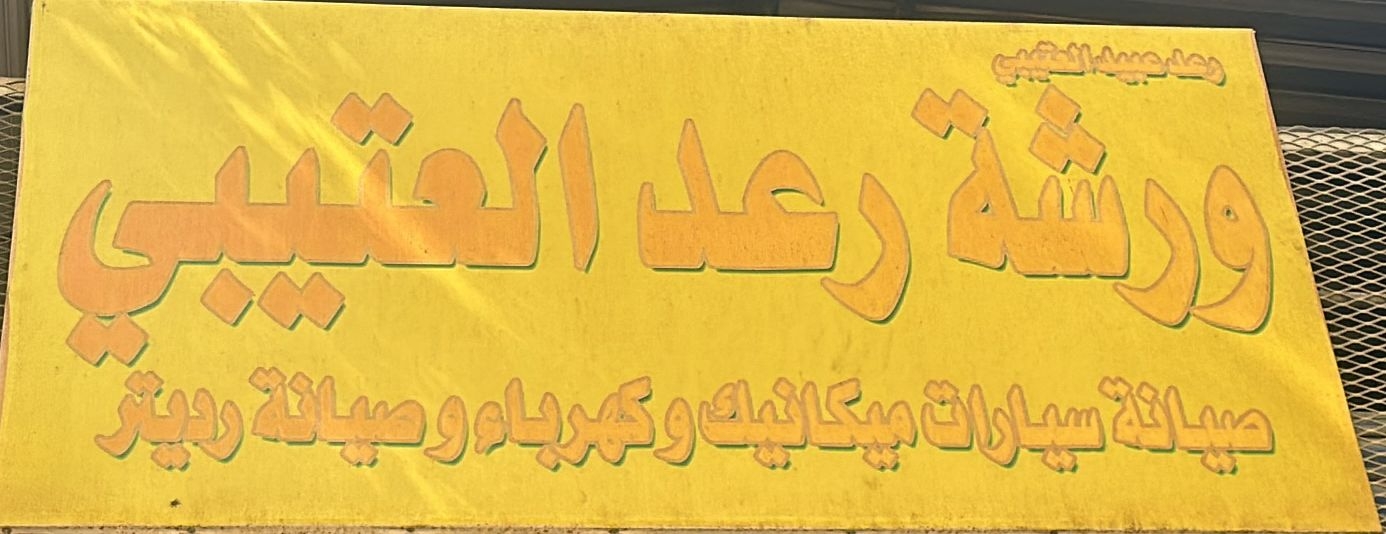 رعد عبيد العتيبي
ورشة رعد العتيبي
صيانة سيارات ميكانيك و كهرباء و صيانة رديتر